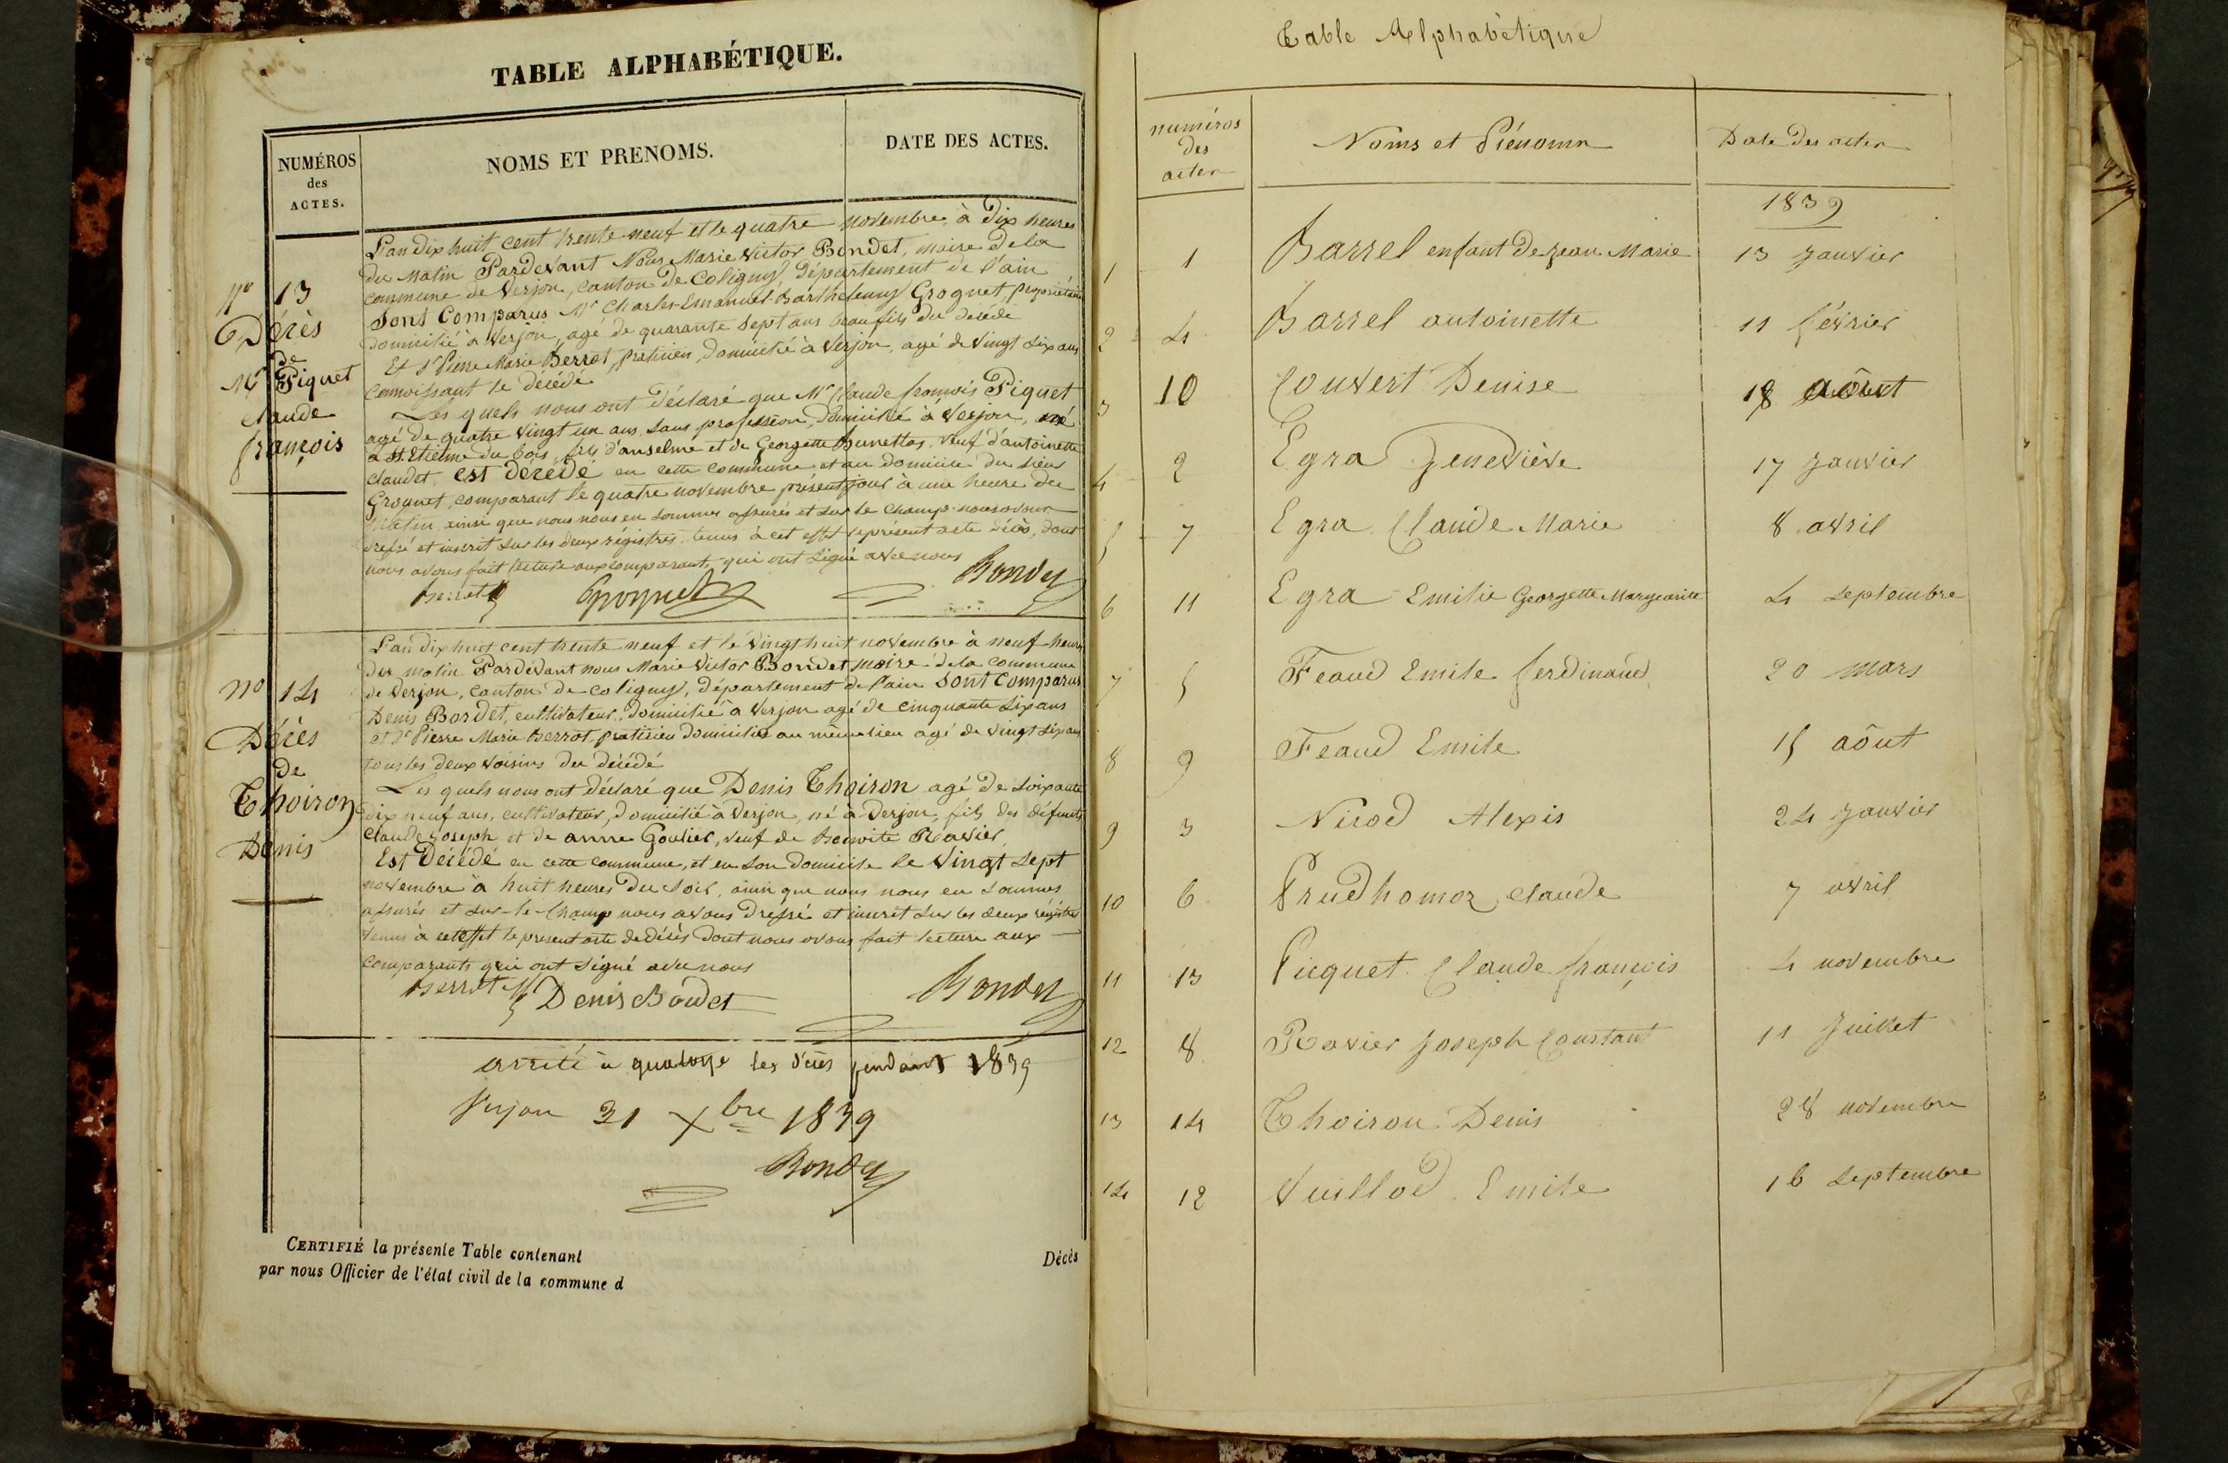 TABLE ALPHABÉTIQUE.
NUMÉROS
des
ACTES.
NOMS ET PRENOMS.
DATE DES ACTES.
No 13
Décès
de
Mr Piquet
Claude
françois
L'an dix huit cent trente neuf et le quatre novembre à Dix heures
du matin Pardevant Nous Marie Victor Bondet, maire de la
commune de Verjon, canton de Coligny, département de l'ain
Sont Comparus Mr Charles Emanuel Barthelemy Groguet, propriétaire
domicilié à Verjon, agé de quarante sept ans beau fils du décédé
Et Sr Pierre Marie Berrot, praticien, Domicilié à Verjon, agé de vingt six ans
Connoissant le décédé
Les quels nous ont déclaré que Mr Claude françois Piquet
agé de quatre vingt un ans sans profession, Domicilié à Verjon, né
à St. Etienne du bois, fils d'anselme et de Georgette, veuf d'antoinette
claudet, est décédé en cette commune et au domicile du sieur
Groguet, comparant le quatre novembre present jour à une heure du
Matin, ainsi que nous nous en sommes assurés et sur le champ nous avons
dressé et inscrit sur les deux régistres tenus à cet effet le présent acte décès, dont
nous avons fait lecture aux comparant, qui ont signé avec nous
Berrot Groguet Bondet
No 14
Décès
de
Thoiron
Denis
L'an dix huit cent trente neuf et le vingt huit novembre à neuf heures
du matin Pardevant nous Marie Victor Bondet maire de la commune
de Verjon, canton de coligny, département de l'ain Sont Comparus
Denis Bordet, cultivateur, domicilié à Verjon agé de cinquante six ans
et Sr Pierre Marie Berrot, praticien domicilié au même lieu agé de vingt six ans
tous les deux voisins du décédé
Les quels nous ont déclaré que Denis Thoiron agé de soixante
dix neuf ans, cultivateur, domicilié à Verjon, né à Verjon, fils des défunts
Claude Joseph et de anne Goulier, veuf de Benoite Ravier,
Est Décédé en cette commune, et en son domicile le Vingt sept
novembre à huit heures du soir, ainsi que nous nous en sommes
assurés et sur-le-champ nous avons dressé et inscrit sur les deux régistres
tenus à cet effet le present acte de décès dont nous avons fait lecture aux
comparants qui ont signé avec nous
Berrot M Denis Bordet Bondet
arrété à quatorze les décès pendant 1839
Verjon 31 Xbre 1839
Bondet
CERTIFIÉ la présente Table contenant Décès
par nous Officier de l'état civil de la commune d
Table Alphabétique
numéros
des
actes
Noms et Prénoms
Date des actes
1839
1 1 Barrel enfant de Jean Marie 13 Janvier
2 4 Barrel antoinette 11 février
3 10 Couvert Denise 18 août
4 2 Egra Geneviève 17 Janvier
5 7 Egra Claude Marie 8 avril
6 11 Egra Emilie Georgette Margearitte 4 septembre
7 5 Feaud Emile ferdinand 20 mars
8 9 Feaud Emile 15 aôut
9 3 Nicod Alexis 24 Janvier
10 6 Prudhomoz claude 7 avril
11 13 Picquet Claude françois 4 novembre
12 8 Ravier Joseph Constant 11 Juillet
13 14 Thoiron Denis 28 novembre
14 12 Vuillod Emile 16 septembre